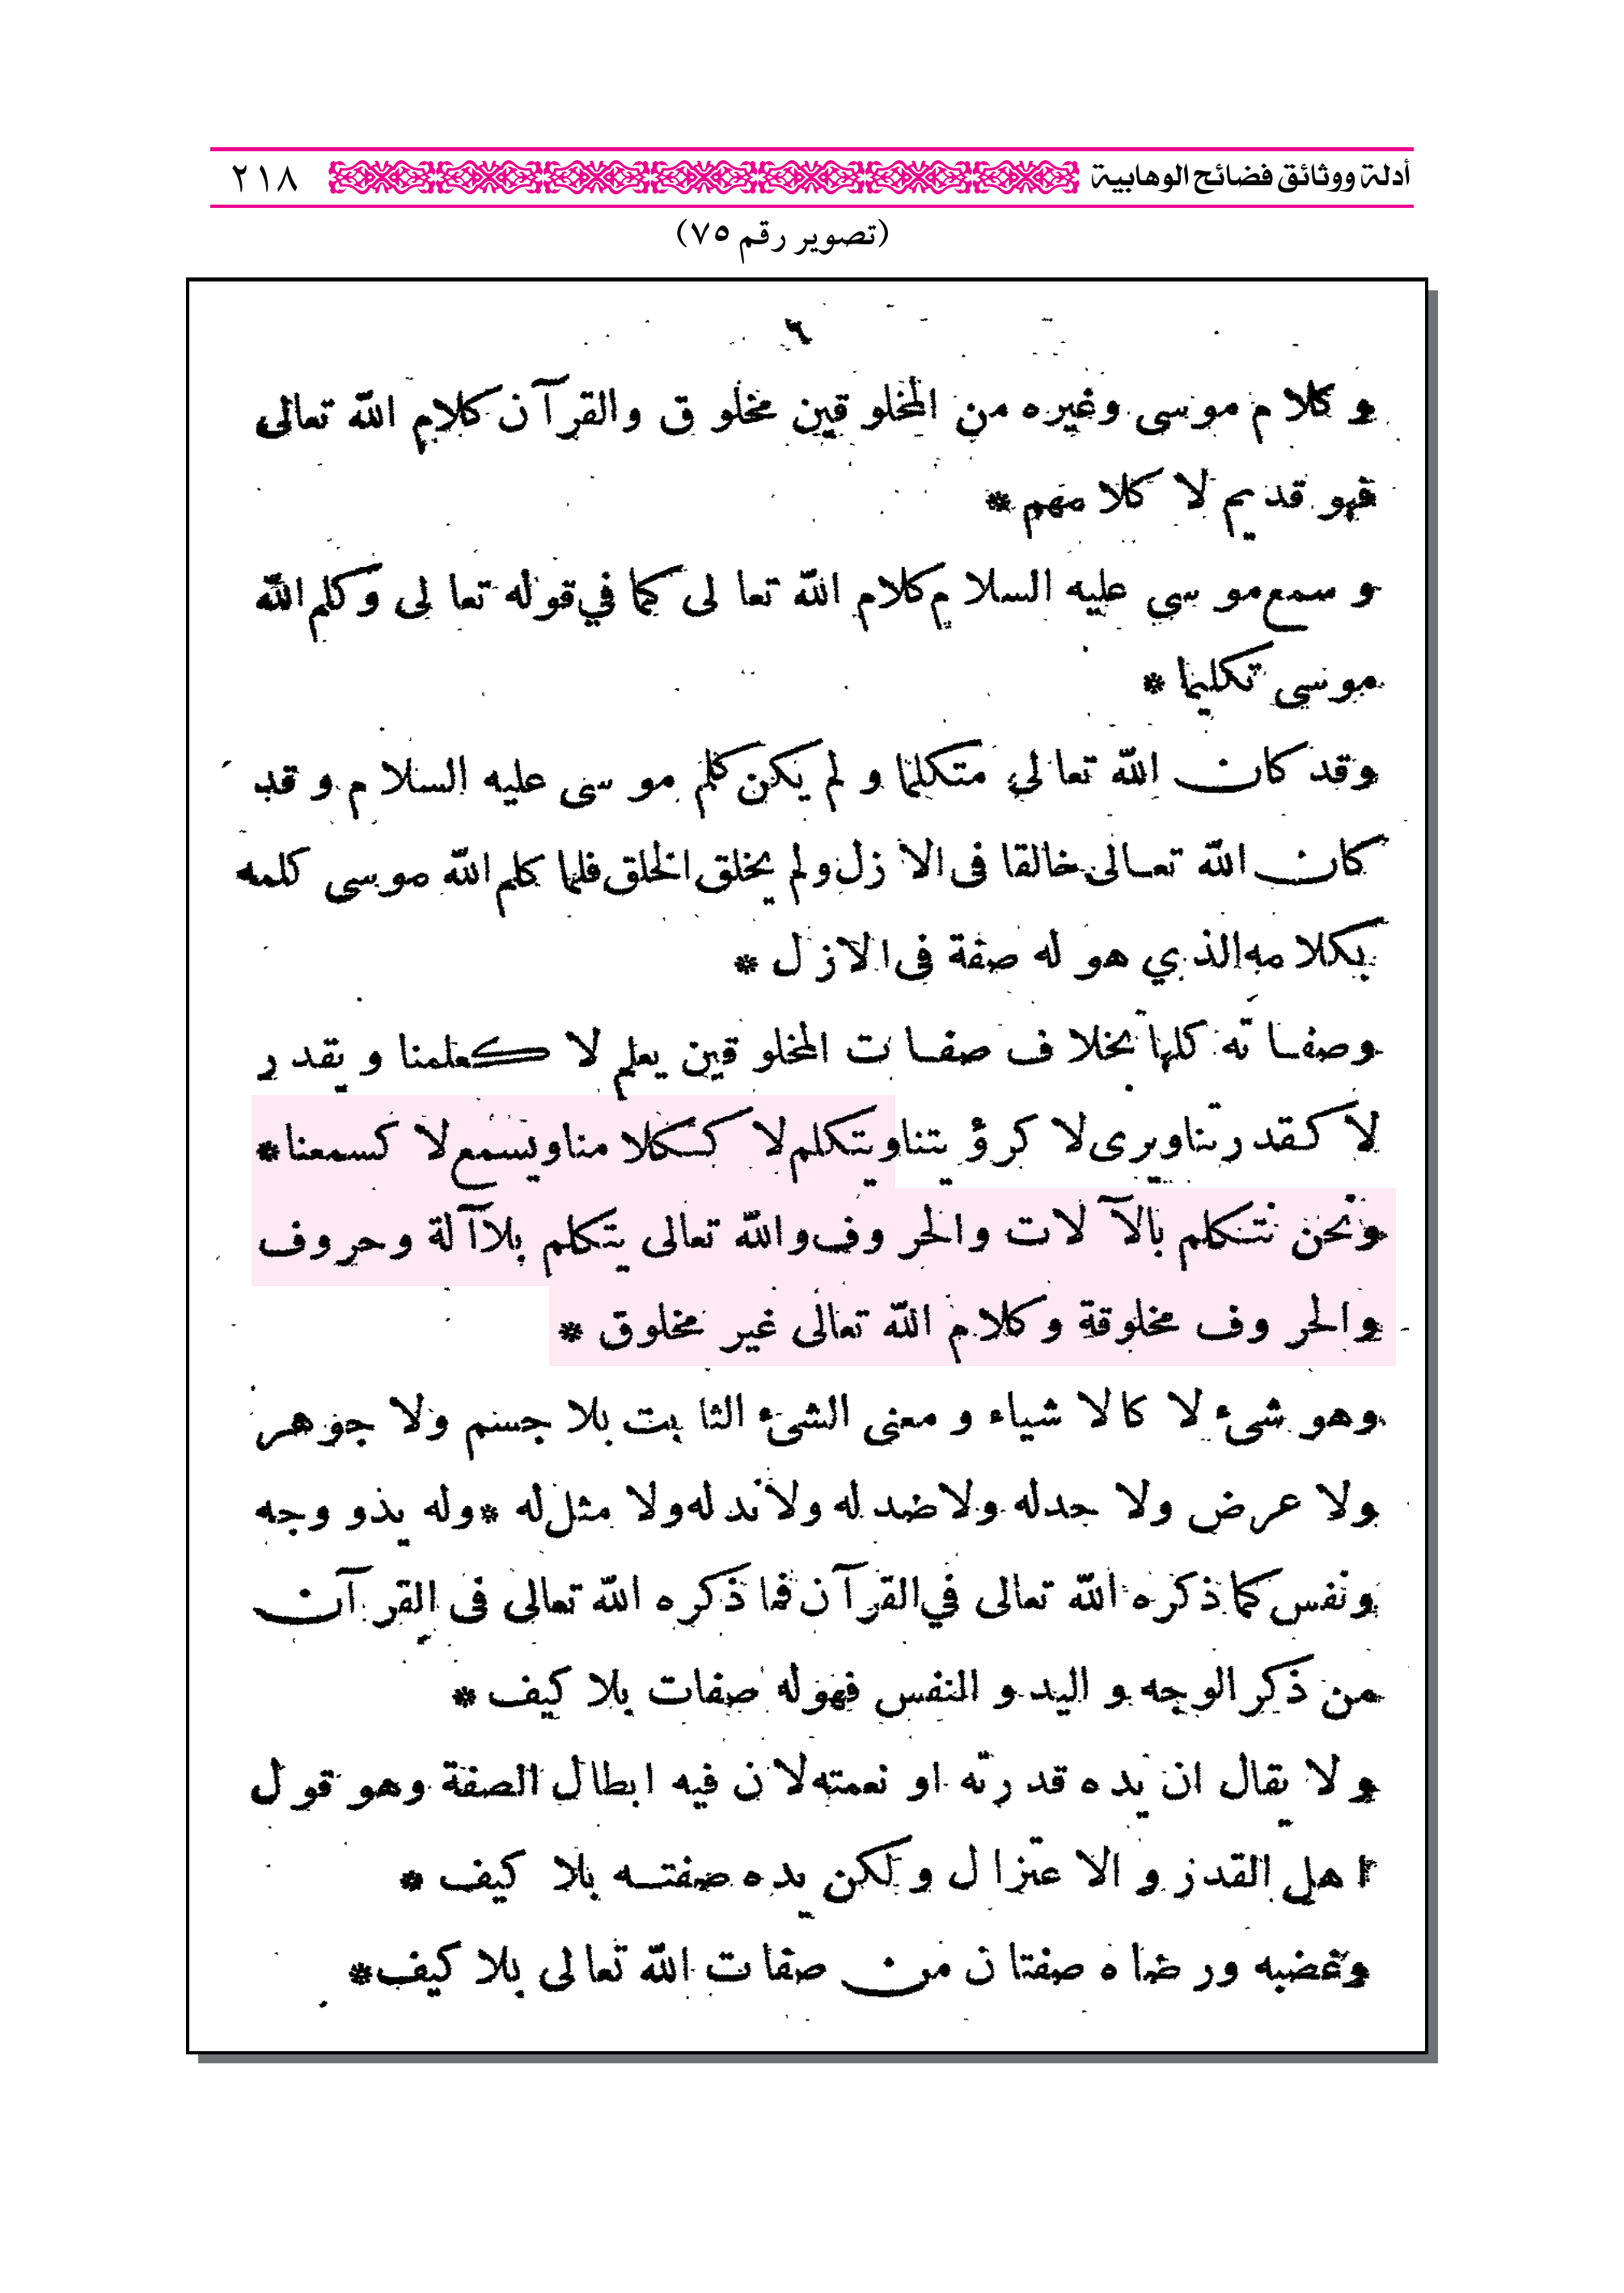 أدلة ووثائق فضائح الوهابية ٢١٨
(تصوير رقم ٧٥)
٦
وكلام موسى وغيره من المخلوقين مخلوق والقرآن كلام الله تعالى
فهو قديم لا كلامهم *
وسمع موسى عليه السلام كلام الله تعالى كما في قوله تعالى وكلم الله
موسى تكليما *
وقد كان الله تعالى متكلما ولم يكن كلم موسى عليه السلام وقد
كان الله تعالى خالقا فى الازل ولم يخلق الخلق فلما كلم الله موسى كلمه
بكلامه الذي هو له صفة فى الازل *
وصفاته كلها بخلاف صفات المخلوقين يعلم لا كعلمنا ويقدر
لا كقدرتنا ويرى لا كرؤيتنا ويتكلم لا ككلامنا ويسمع لا كسمعنا *
ونحن نتكلم بالآلات والحروف والله تعالى يتكلم بلا آلة وحروف
والحروف مخلوقة وكلام الله تعالى غير مخلوق *
وهو شىء لا كالاشياء ومعنى الشىء الثابت بلا جسم ولا جوهر
ولا عرض ولا حدله ولا ضد له ولا ند له ولا مثل له * وله يد و وجه
ونفس كما ذكره الله تعالى في القرآن فما ذكره الله تعالى فى القرآن
من ذكر الوجه و اليد و النفس فهو له صفات بلا كيف *
ولا يقال ان يده قدرته او نعمته لان فيه ابطال الصفة وهو قول
اهل القدر و الاعتزال ولكن يده صفته بلا كيف *
وغضبه ورضاه صفتان من صفات الله تعالى بلا كيف *